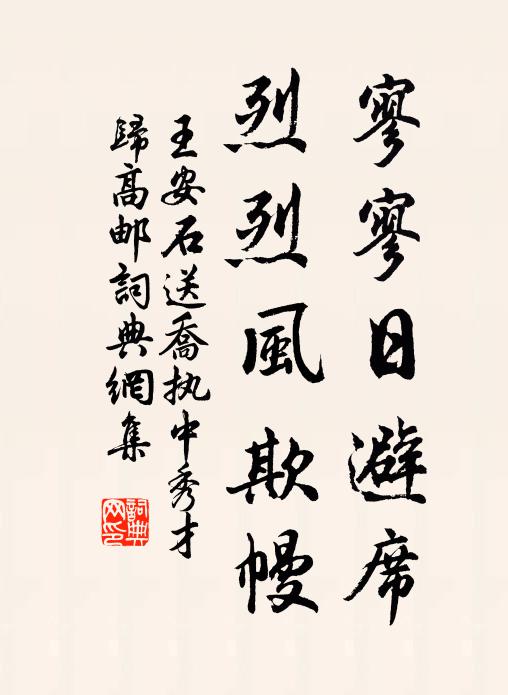 寥寥日避席
烈烈風欺幔
王安石送喬执中秀才
歸高邮詞典網集
詞典网印